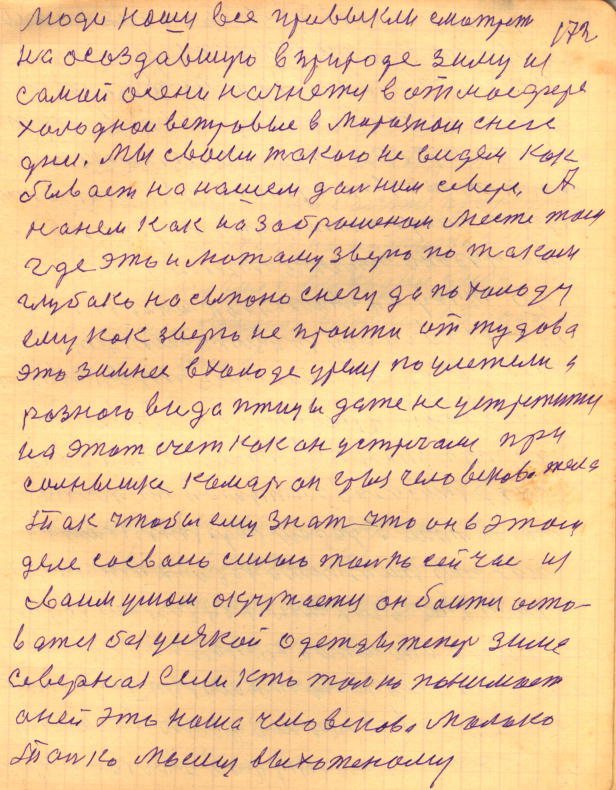 Люди наши все привыкли смотреть
172
на асоздавшую в природе зиму из
самой осени начнется в отмосфере
холодной ветровые в Моразном снеге
дни. Мы своем такого не видем как
бывает на нашем далним севере. А
на нем как на заброшеном месте
где это и лютому зверю по таком
глубако насыпоно снегу да по холоду
ему как зверю не проити от тудова
это зимнее в холоде уремя по улетели
разного вида птицы даже не устретити
на этот счет как он устречали при
солнышке комар он грыз человеково тела
Так чтобы ему знат что он в этом
деле со своею силою толко сейчас из
сваим умом окружается он боится оста-
ватся без усякой одежды тепер зиме
северная Если кто толко понимает
о ней это наша человекова Малако
Толко моему